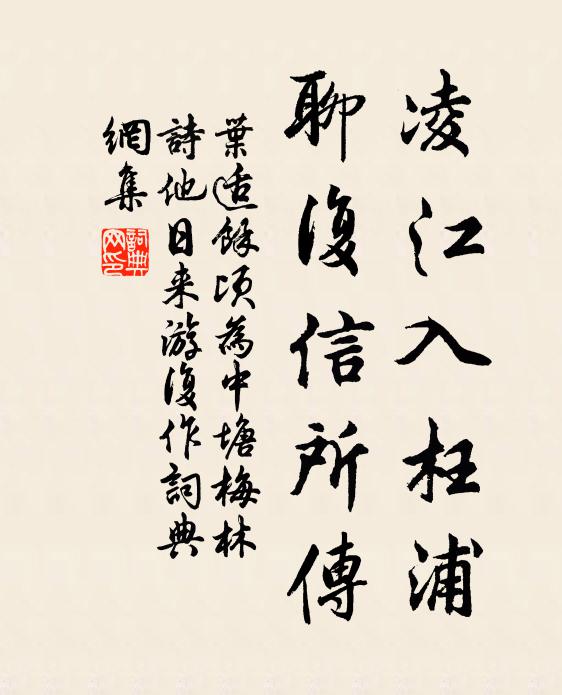 凌江入枉浦
聊復信所傳
葉适餘頃為中塘梅林
詩他日来游復作詞典
網集
詞典网印